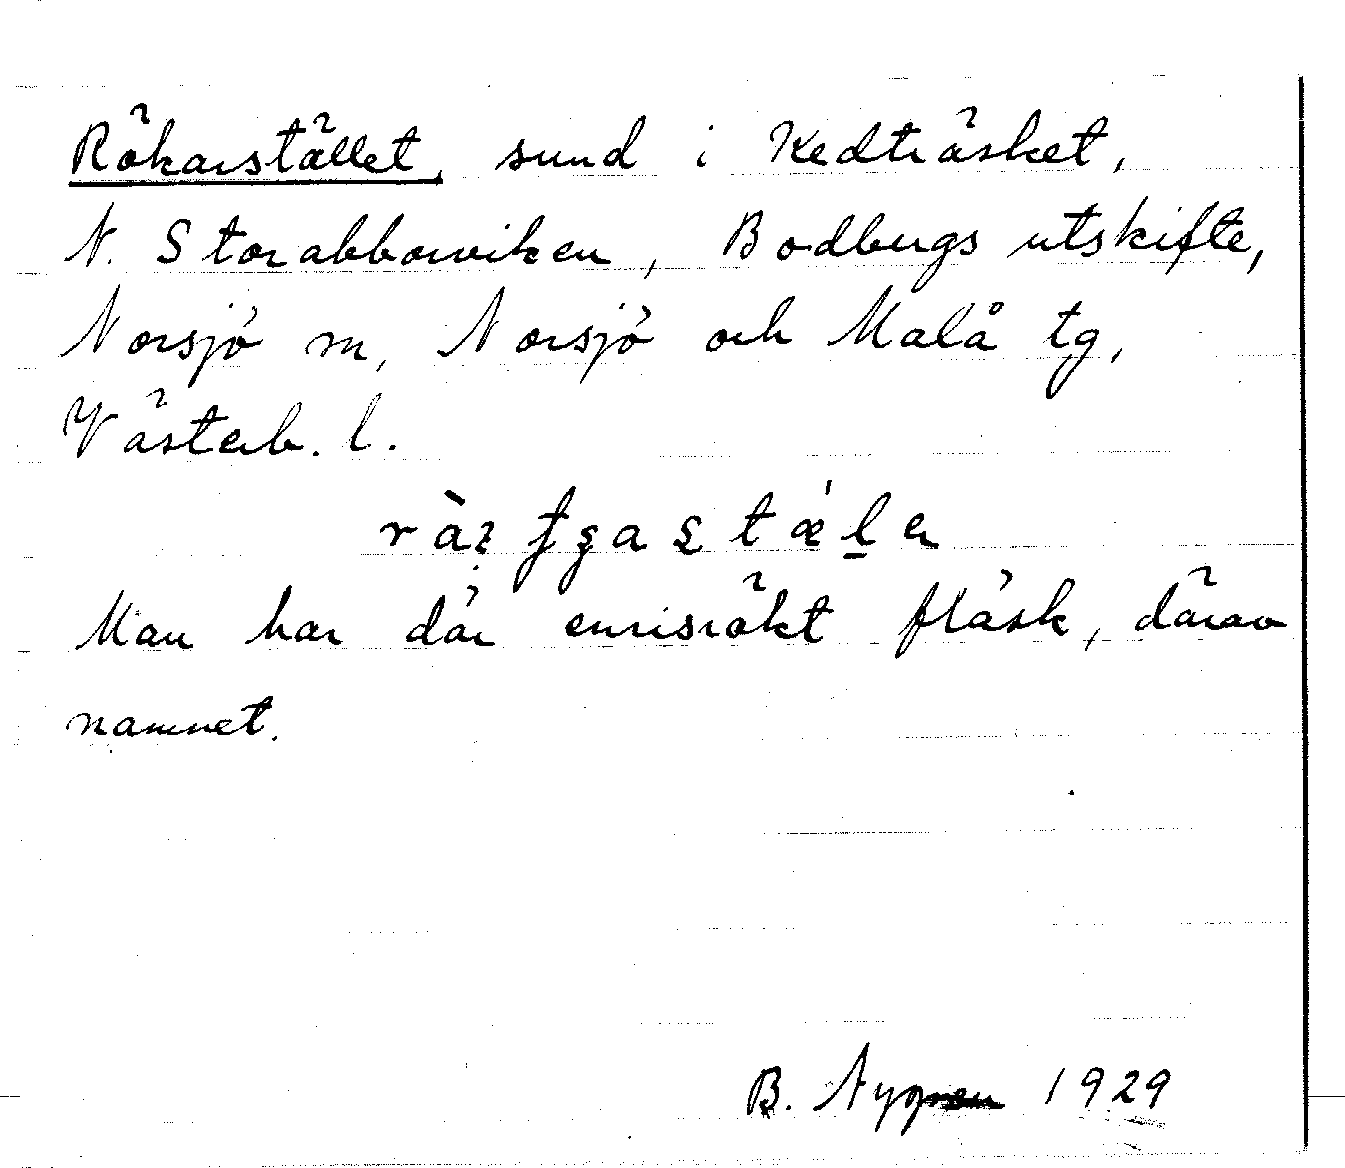 Rökarstället, sund i Kedträsket,
N. Storabborrviken, Bodbergs utskifte,
Norsjö sn, Norsjö och Malå tg,
Västerb. l.
Man har där enrisrökt fläsk, därav
namnet.
B. Nygren 1929